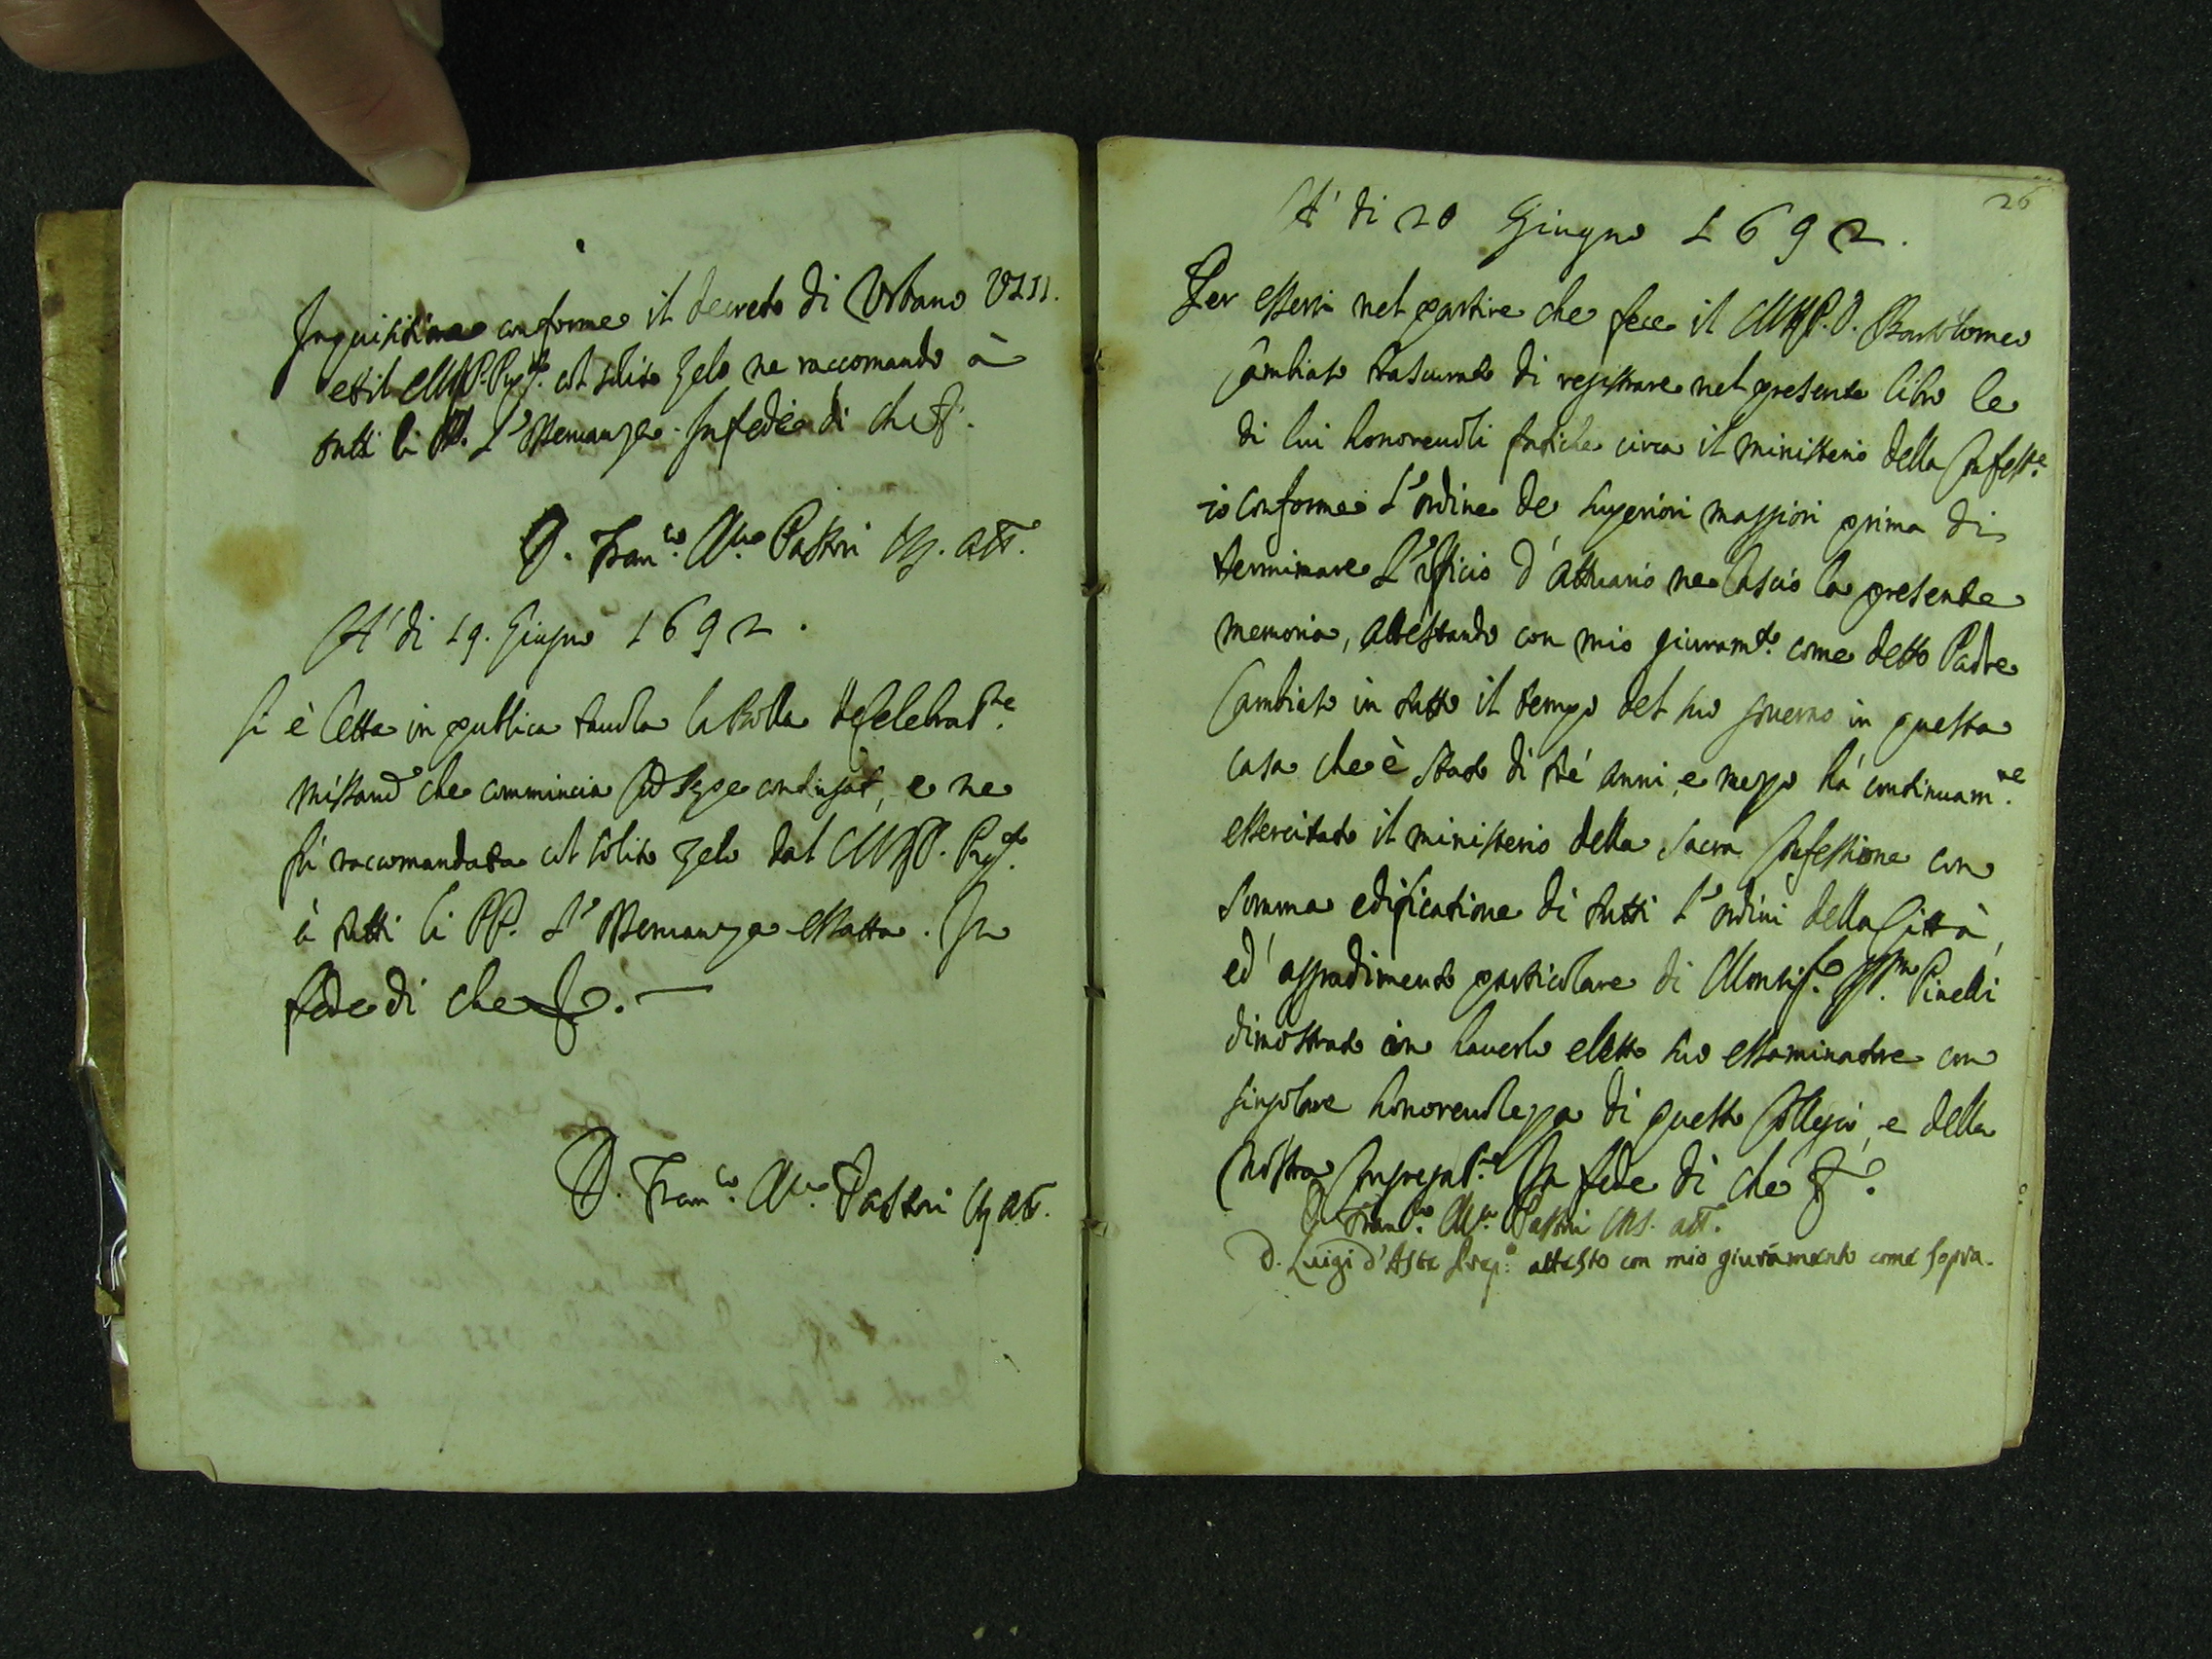 Inquisitione conforme il decreto di Urbano VIII.
et il M.R.P. Prep.to col solito zelo ne raccomandò à
tutti li PP. l'osservanza. In fede di che &.
D. Fran.co M.a Pastori C.R.S. att.
A' di 19. Giugno 1692.
Si è letta in publica tavola la Bolla de Celebrat.ne
missarũ che commincia Cum sepe contingat, e ne
fù raccomandata col solito zelo dal M.R.P. Prep.to
à tutti li PP. l'osservanza essatta. In
fede di che &.
D. Fran.co M.a Pastori C.R.S. att.
26
A' di 20 Giugno 1692.
Per essersi nel partire che fece il M.R.P. D. Bartolomeo
Cambiaso trascurato di registrare nel presente libro le
di lui honorevoli fatiche circa il ministerio della Confess.e
io conforme l'ordine de superiori maggiori prima di
terminare l'uficio d'attuario ne lascio la presente
memoria, attestando con mio giuram.to come detto Padre
Cambiaso in tutto il tempo del suo governo in questa
casa che è stato di trè anni, e mezzo hà continuam.te
essercitato il ministerio della sacra Confessione con
somma edificatione di tutti l'ordini della Città,
ed aggradimento particolare di Monsig.r Pinelli
dimostrato in haverlo eletto suo essaminatore con
singolare honorevolezza di questo Collegio, e della
nostra Congregat.ne In fede di che &.
D. Fran.co M.a Pastori C.R.S. att.
D. Luigi d'Aste Prep.o attesto con mio giuramento come sopra.